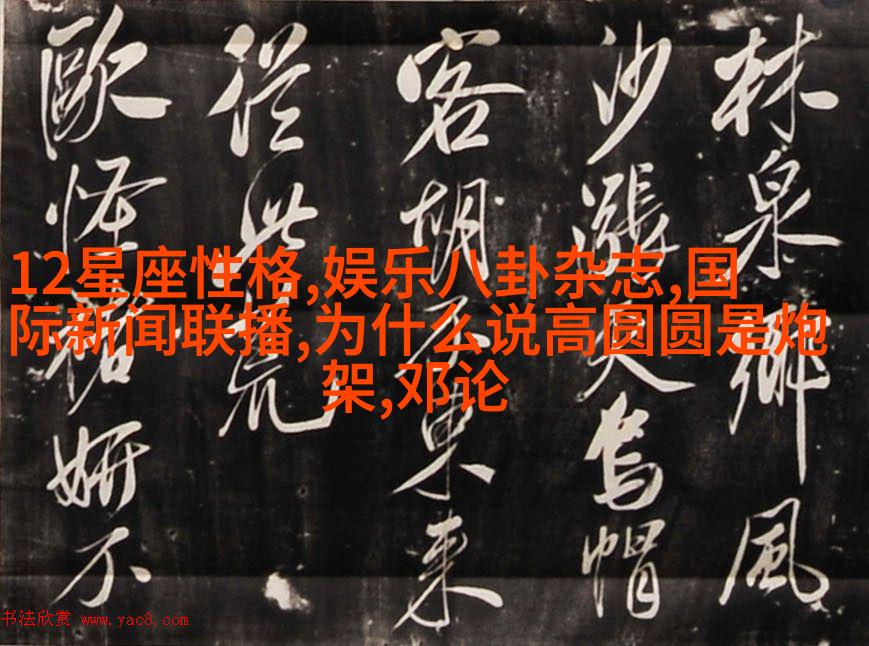 林泉風
沙漲天烏帽
客胡不東來
從此荒
歐怪褚妍不
12星座性格,娱乐八卦杂志,国
际新闻联播,为什么说高圆圆是炮
架,邓论
书法欣赏 www.yac8.com